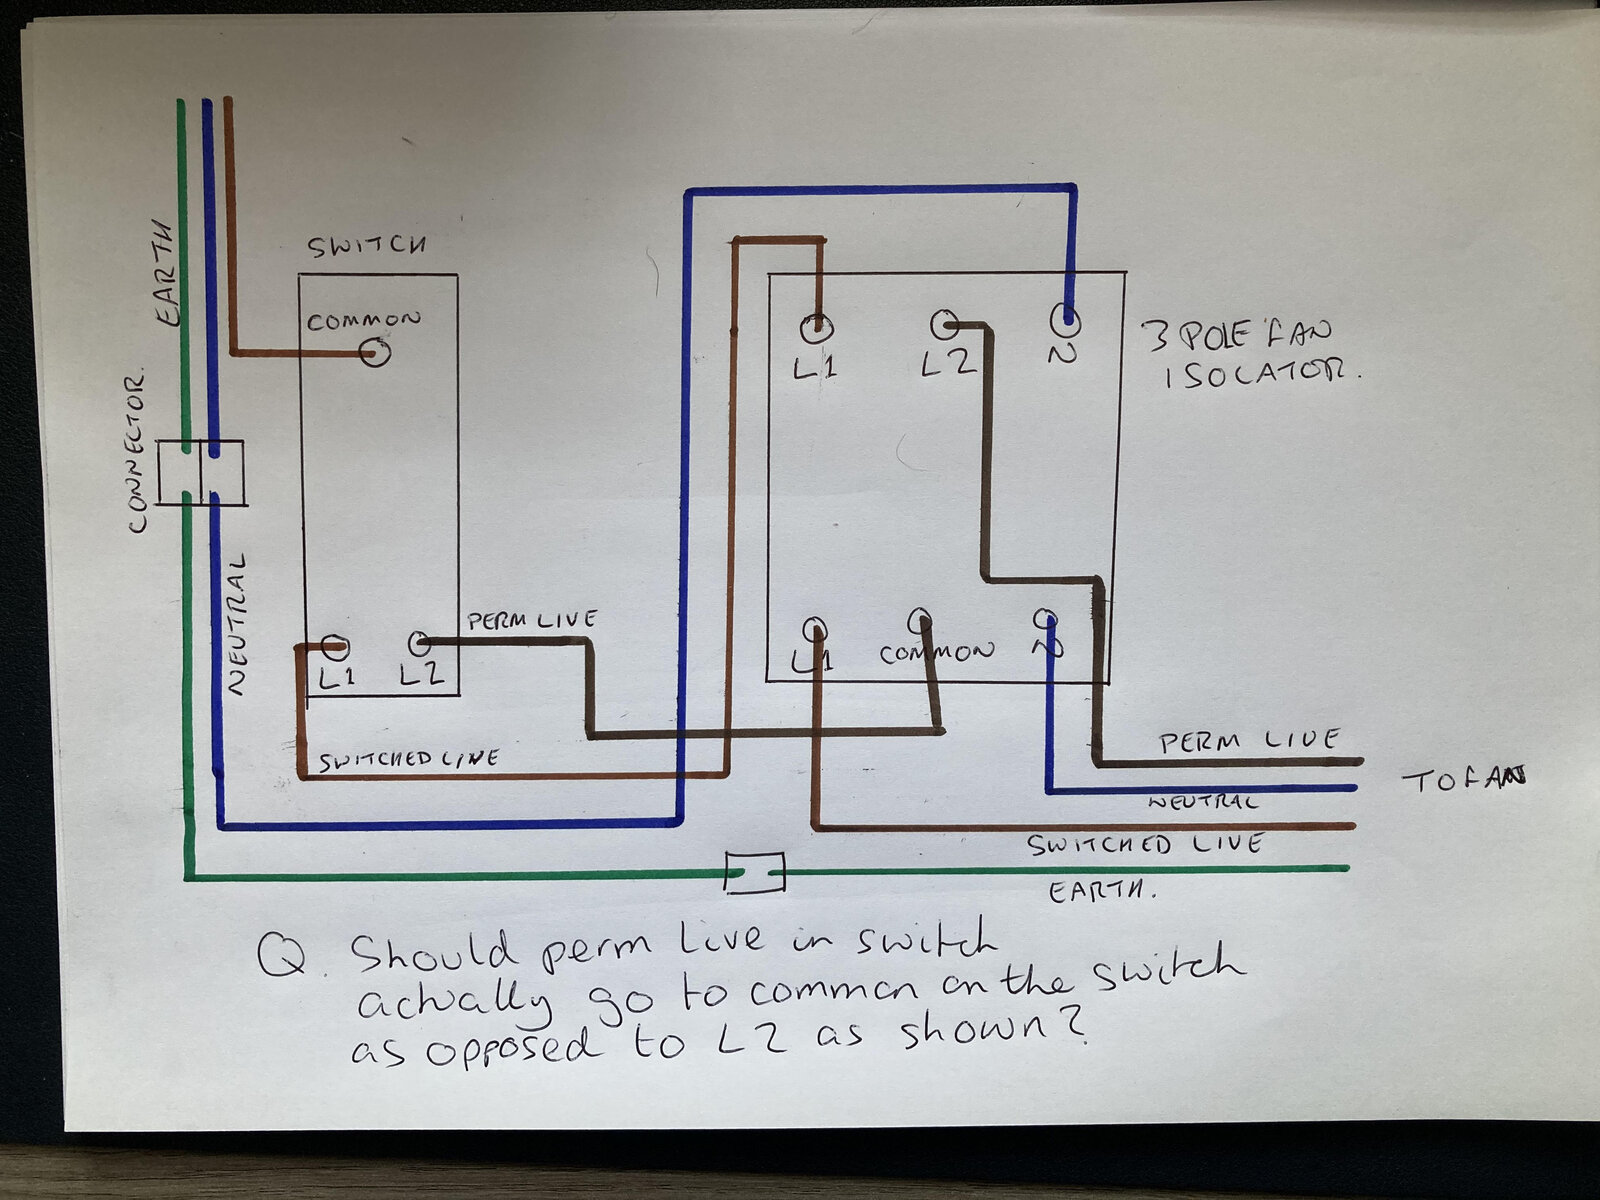 EARTH
CONNECTOR.
NEUTRAL
SWITCH
COMMON
L1
L2
PERM LIVE
SWITCHED LIVE
L1
L2
N
3 POLE FAN
ISOLATOR.
L1
COMMON
N
PERM LIVE
NEUTRAL
SWITCHED LIVE
EARTH.
TO FAN
Q. Should perm live in switch
actually go to common on the switch
as opposed to L2 as shown?